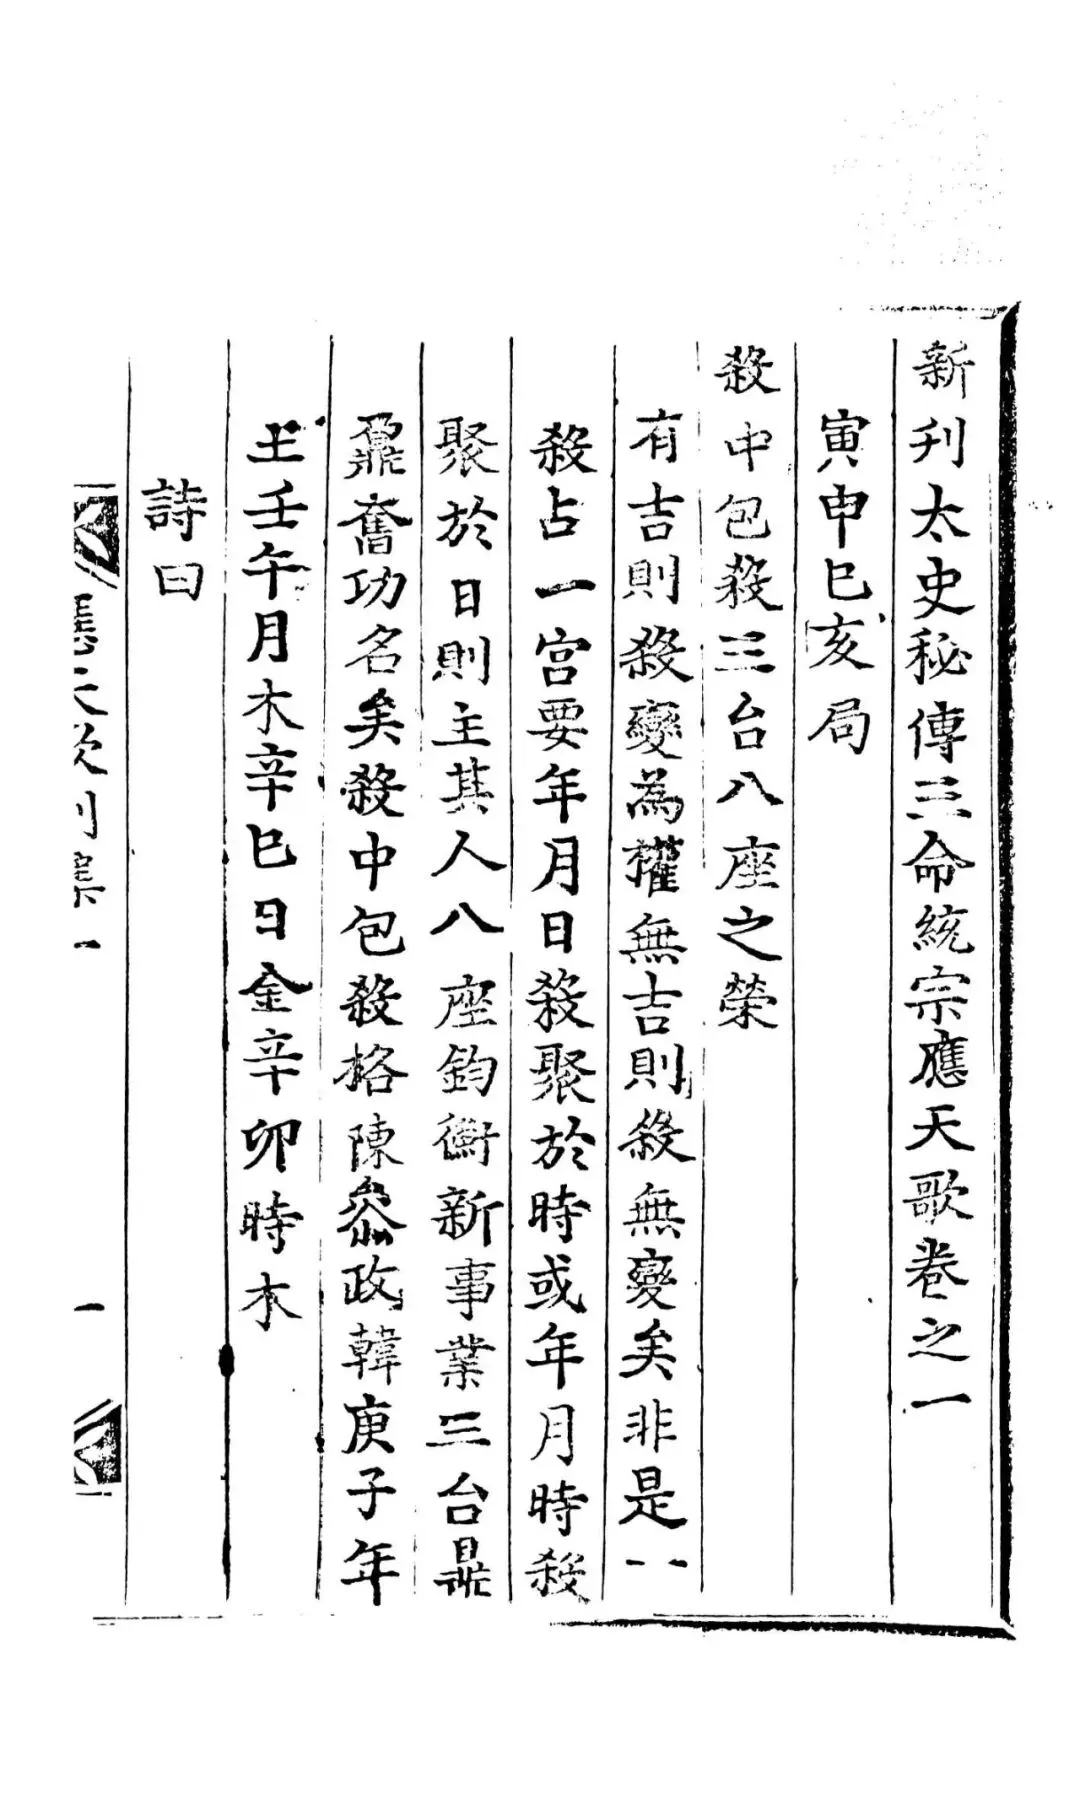 新刊太史秘傳三命統宗應天歌卷之一
寅申巳亥局
殺中包殺三台八座之榮
有吉則殺變為權無吉則殺無變矣非是一
殺占一宮要年月日殺聚於時或年月時殺
聚於日則主其人八座鈞衡新事業三台鼎
鼐奮功名矣殺中包殺格陳叅政韓庚子年
土壬午月木辛巳日金辛卯時木
詩曰
應天歌刊集一
一